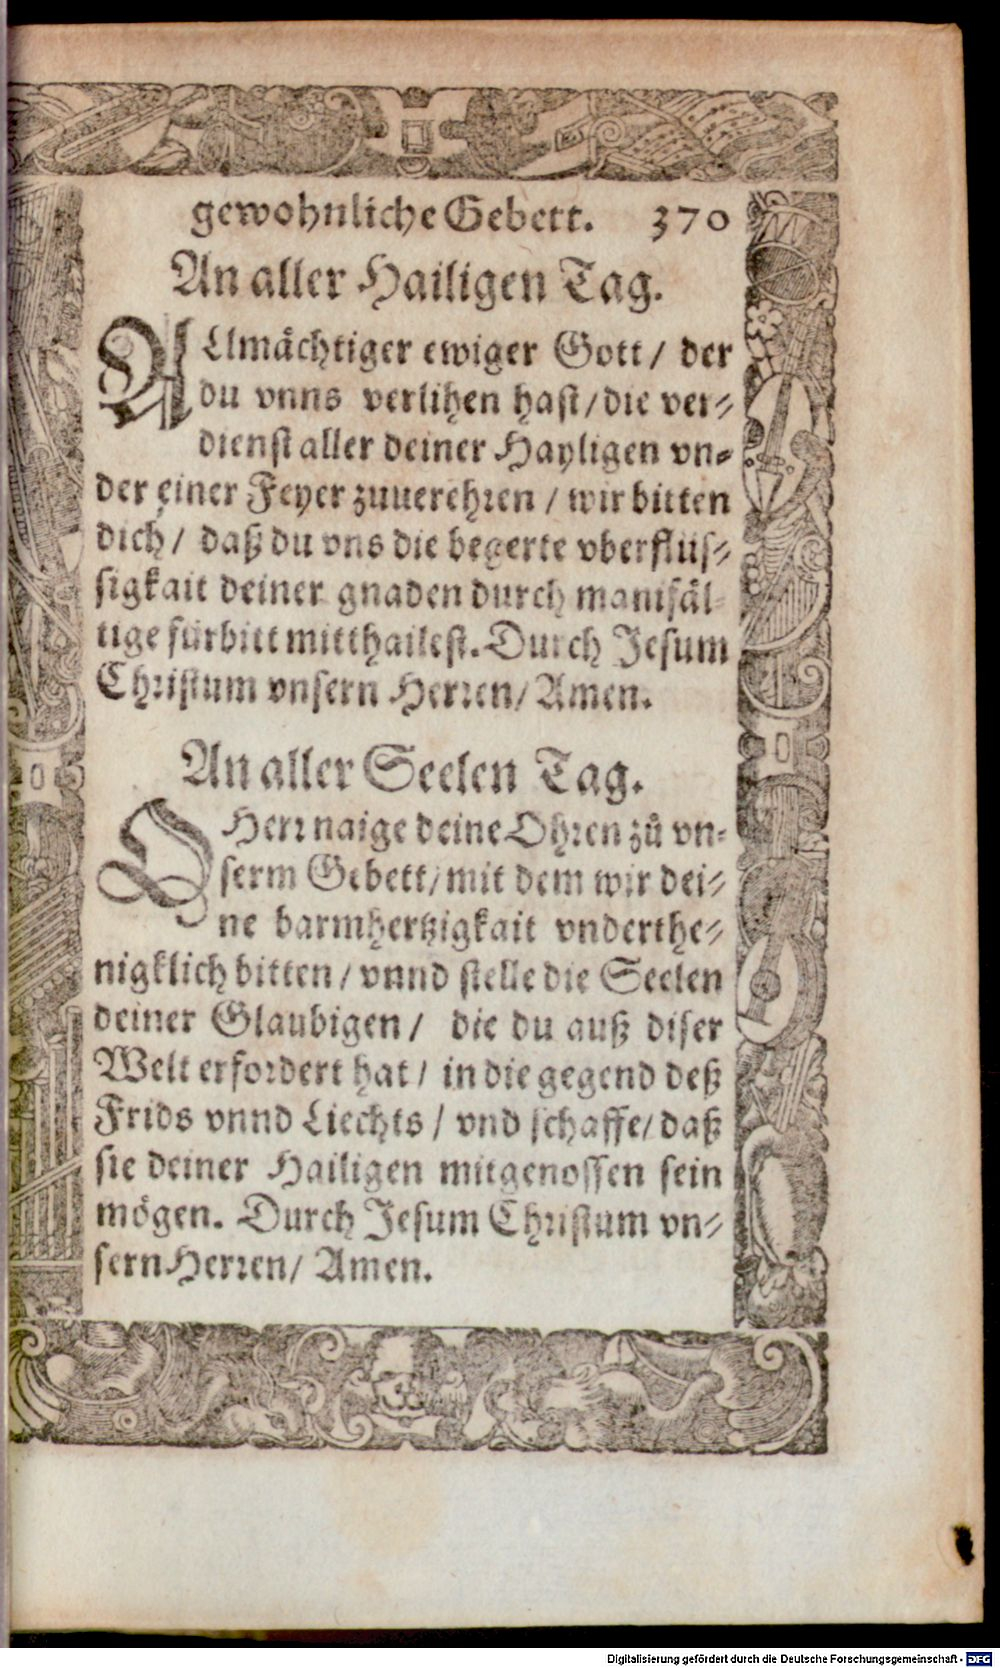 gewohnliche Gebett. 370
An aller Hailigen Tag.
ALlmächtiger ewiger Gott / der
du vnns verlihen hast / die ver-
dienst aller deiner Hayligen vn-
der einer Feyer zuuerehren / wir bitten
dich / daß du vns die begerte vberflüs-
sigkait deiner gnaden durch manifäl-
tige fürbitt mitthailest. Durch Jesum
Christum vnsern Herren / Amen.
An aller Seelen Tag.
O Herr naige deine Ohren zů vn-
serm Gebett / mit dem wir dei-
ne barmhertzigkait vnderthe-
nigklich bitten / vnnd stelle die Seelen
deiner Glaubigen / die du auß diser
Welt erfordert hat / in die gegend deß
Frids vnnd Liechts / vnd schaffe / daß
sie deiner Hailigen mitgenossen sein
mögen. Durch Jesum Christum vn-
sern Herren / Amen.
Digitalisierung gefördert durch die Deutsche Forschungsgemeinschaft - DFG